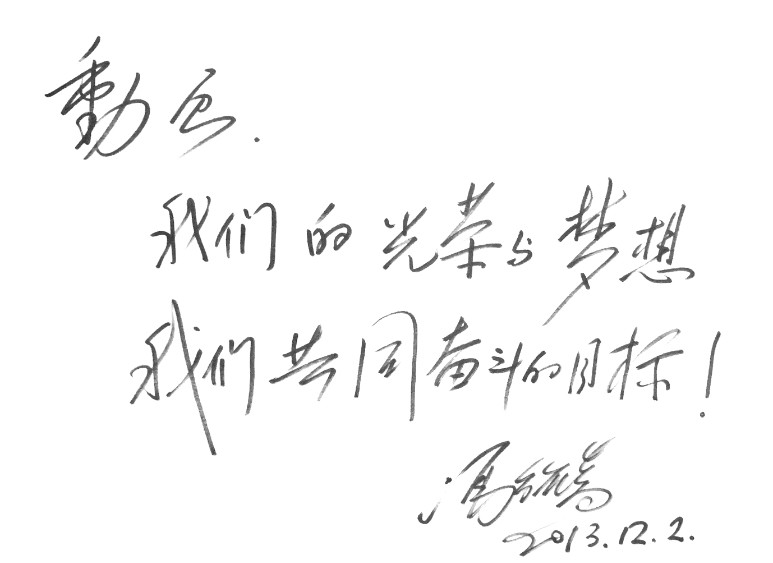 動画.
我们的光荣与梦想
我们共同奋斗的目标!
冯
2013.12.2.